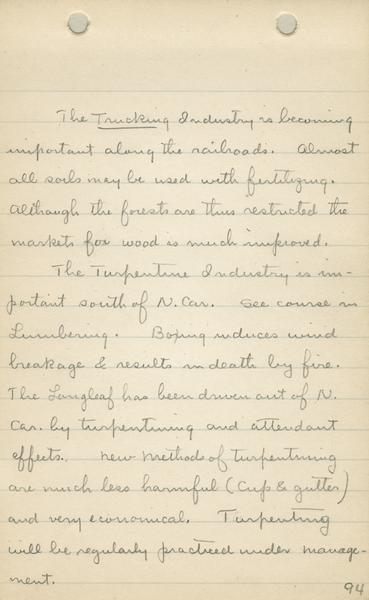 The Trucking Industry is becoming
important along the railroads. Almost
all soils may be used with fertilizing.
Although the forests are thus restricted the
markets for wood is much improved.
The Turpentine Industry is im-
portant south of N. Car. See course in
Lumbering. Boxing induces wind
breakage & results in death by fire.
The Longleaf has been driven out of N.
Car. by turpentining and attendant
effects. New methods of turpentining
are much less harmful (Cup & gutter)
and very economical. Turpenting
will be regularly practiced under manage-
ment.
94